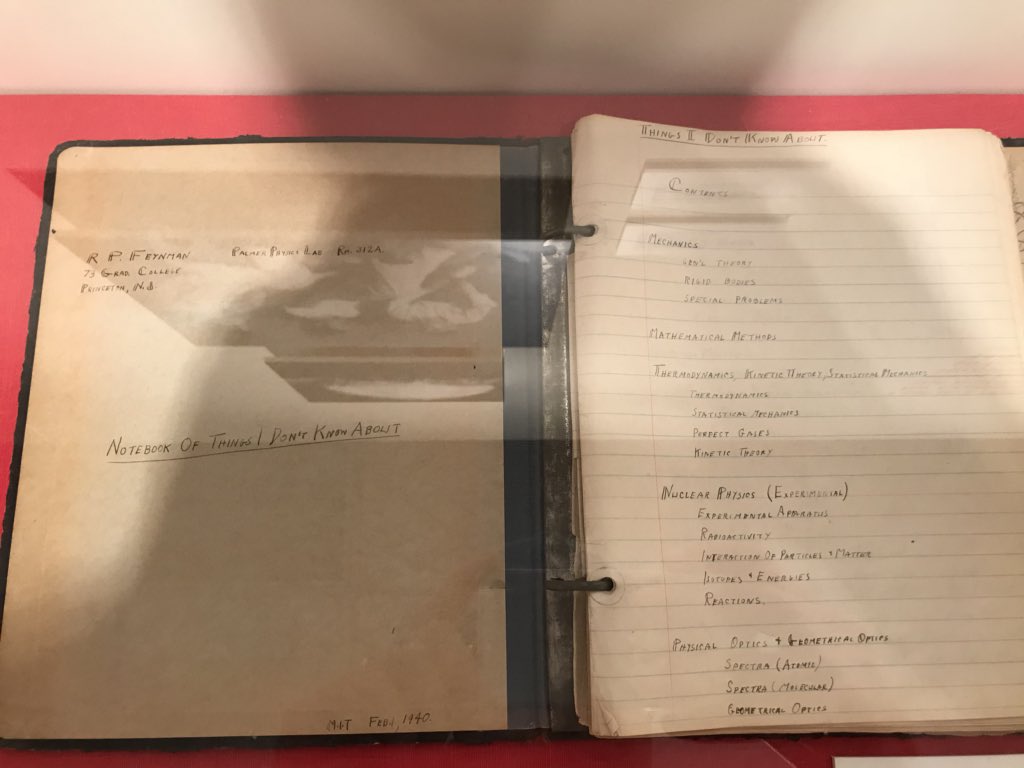 R P. FEYNMAN PALMER PHYSICS LAB RM. 212A.
73 GRAD. COLLEGE
PRINCETON, N.J.
NOTEBOOK OF THINGS I DON'T KNOW ABOUT
MIT FEB 1, 1940.
THINGS I DON'T KNOW ABOUT
CONTENTS
MECHANICS
GEN'L THEORY
RIGID BODIES
SPECIAL PROBLEMS
MATHEMATICAL METHODS
THERMODYNAMICS, KINETIC THEORY, STATISTICAL MECHANICS
THERMODYNAMICS
STATISTICAL MECHANICS
PERFECT GASES
KINETIC THEORY
NUCLEAR PHYSICS (EXPERIMENTAL)
EXPERIMENTAL APPARATUS
RADIOACTIVITY
INTERACTION OF PARTICLES & MATTER
ISOTOPES & ENERGIES
REACTIONS.
PHYSICAL OPTICS & GEOMETRICAL OPTICS
SPECTRA (ATOMIC)
SPECTRA (MOLECULAR)
GEOMETRICAL OPTICS